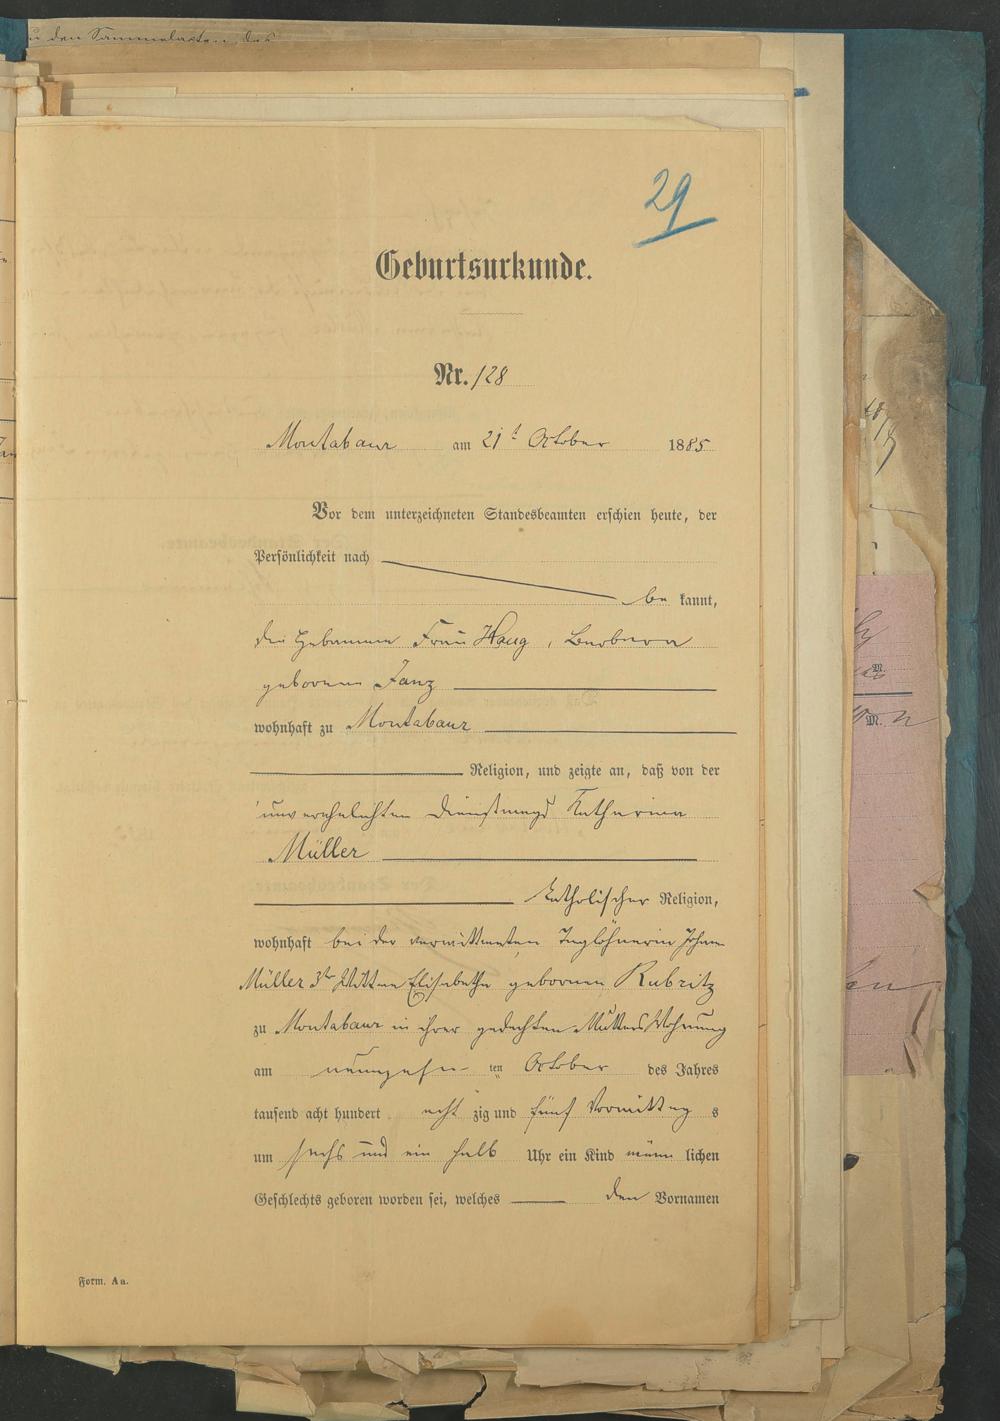 zu den Sammelakten des
29
Geburtsurkunde.
Nr. 128
Montabaur am 21t October 1885
Vor dem unterzeichneten Standesbeamten erschien heute, der
Persönlichkeit nach
be kannt,
die Hebamme Frau Haug, Barbara
geborene Janz
wohnhaft zu Montabaur
Religion, und zeigte an, daß von der
unverehelichten Dienstmagd Katharina
Müller
katholischer Religion,
wohnhaft bei der verwittweten Taglöhnerin Johann
Müller 3ter Wittwe Elisabetha geborenen Kubritz
zu Montabaur in ihrer gedachten Mutters Wohnung
am neunzehn ten October des Jahres
tausend acht hundert acht zig und fünf Vormittag s
um sechs und ein halb Uhr ein Kind männ lichen
Geschlechts geboren worden sei, welches den Vornamen
Form. Aa.